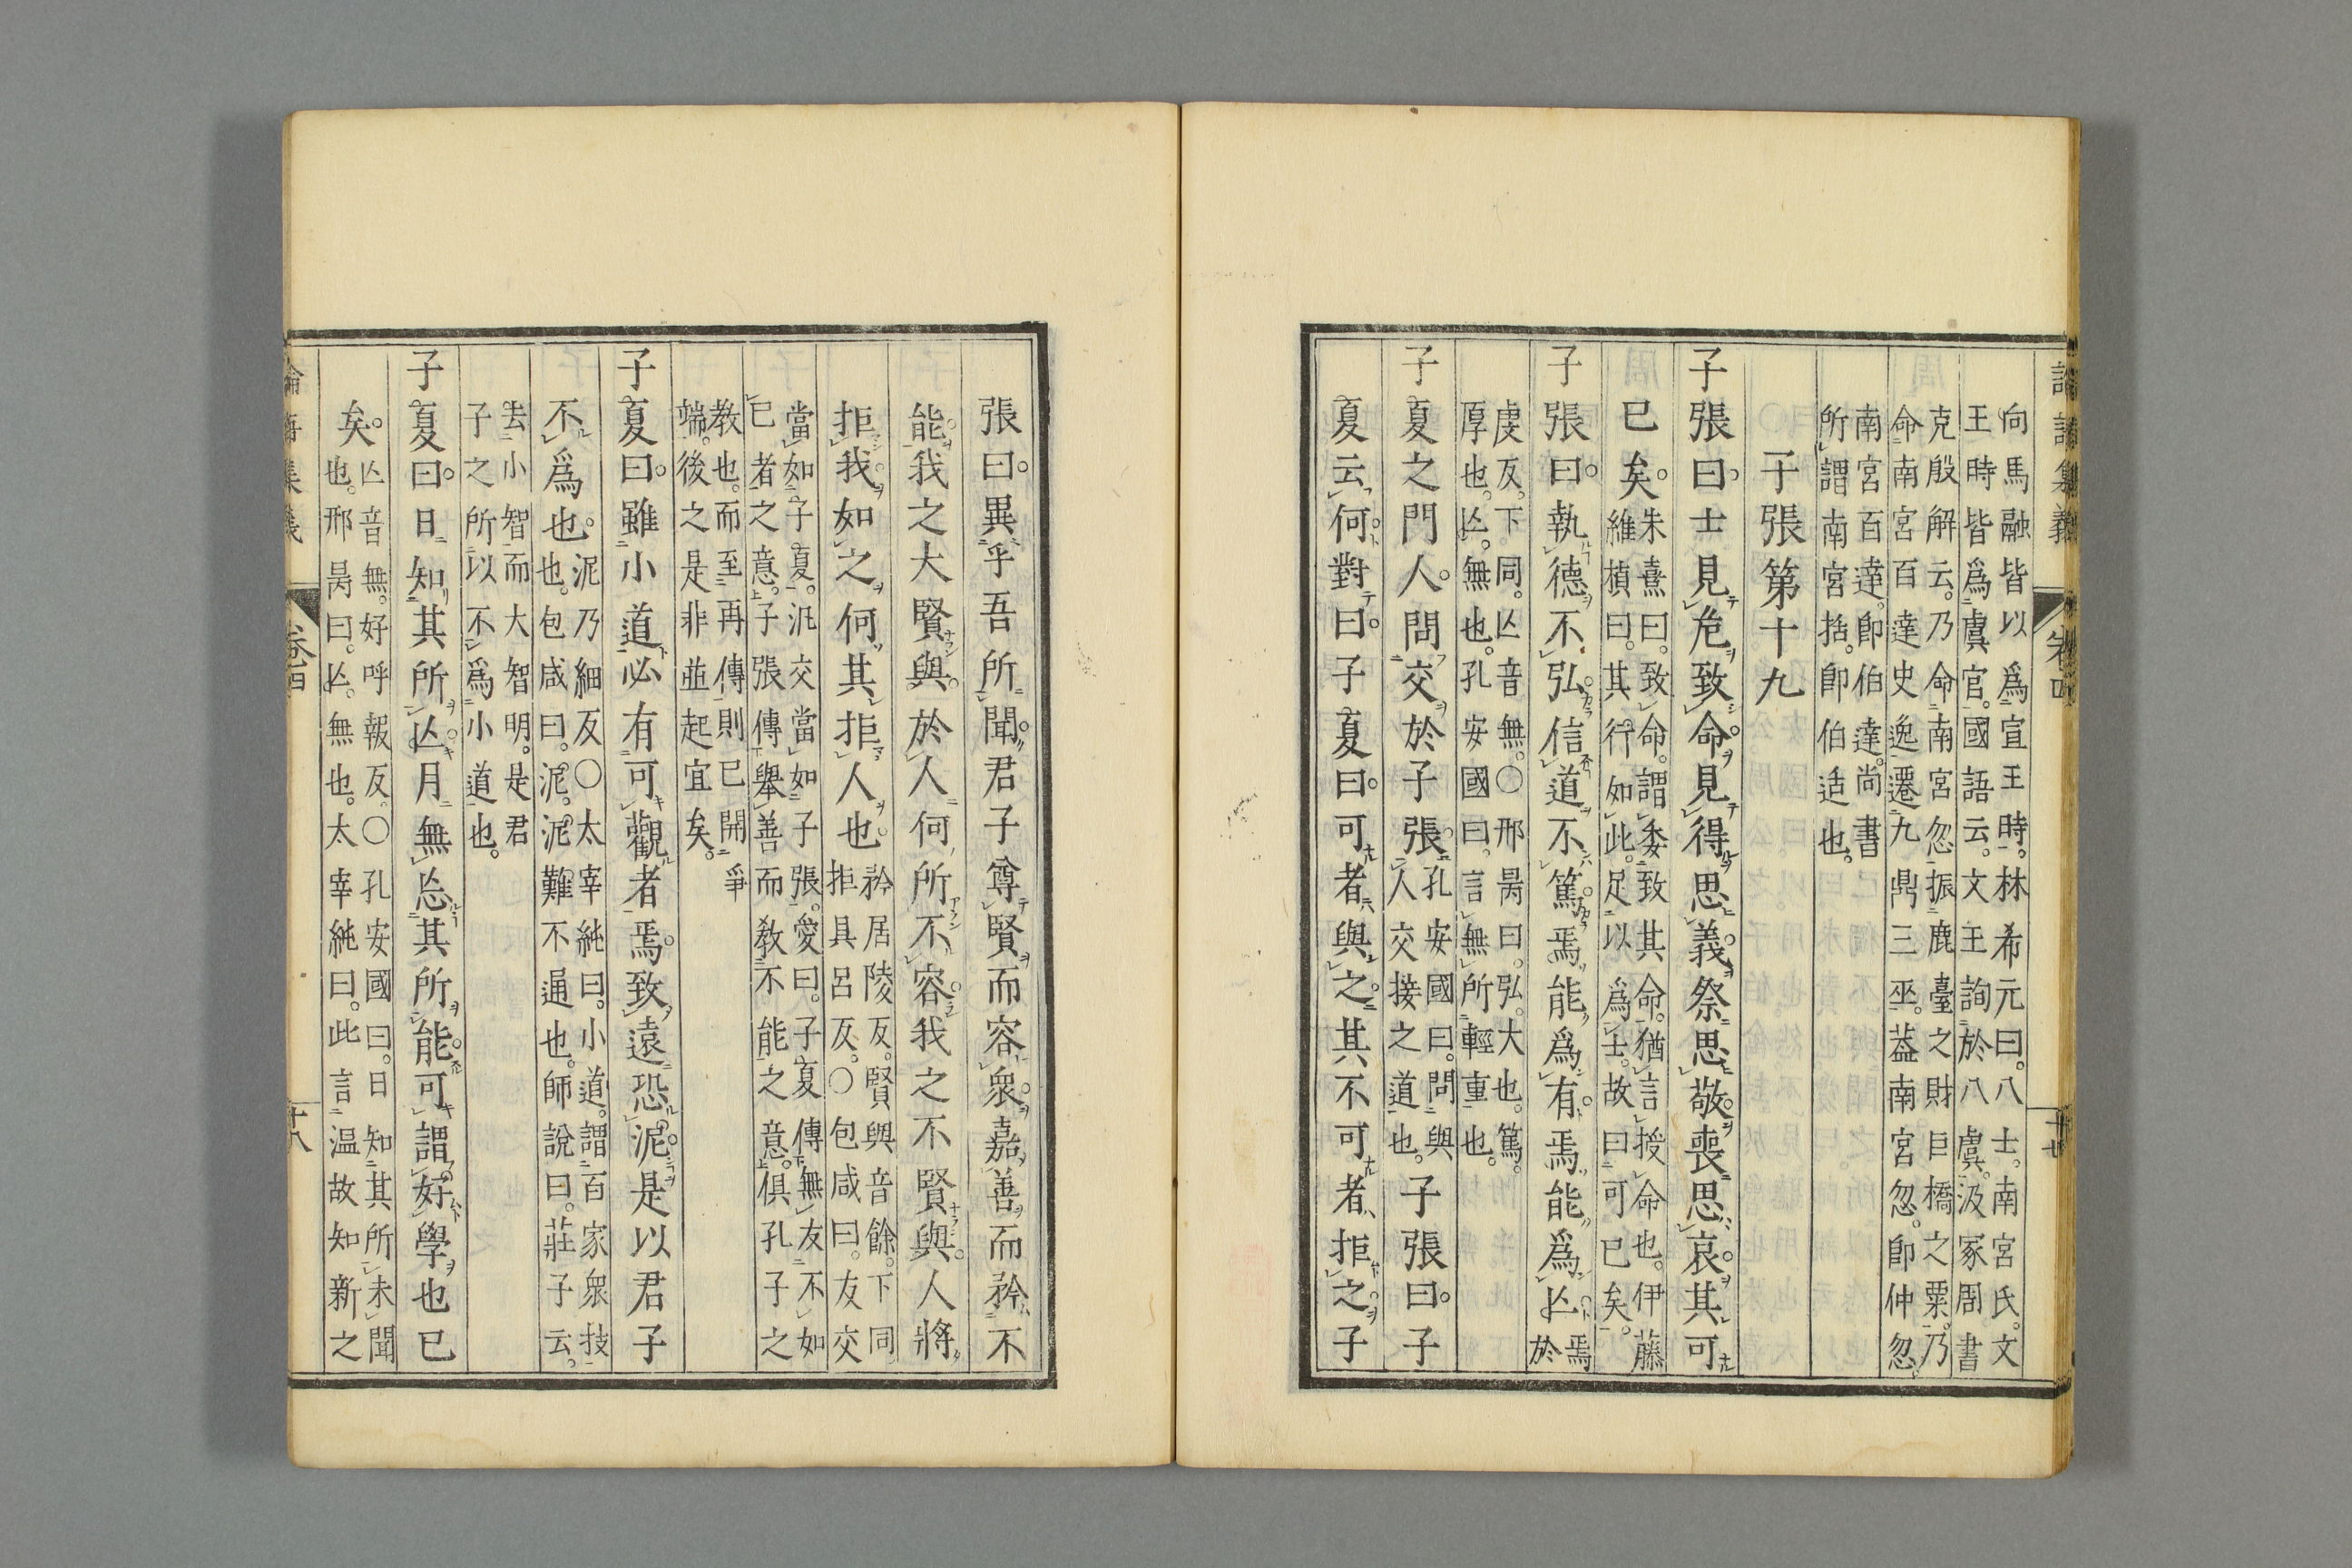 向馬融皆以爲宣王時。林希元曰。八士。南宮氏。文
王時皆爲虞官。國語云。文王詢於八虞。汲冢周書
克殷解云。乃命南宮忽。振鹿臺之財巨橋之粟。乃
命南宮百達史逸遷九鼎三巫。葢南宮忽。卽仲忽。
南宮百達。卽伯達。尚書
所謂南宮括。卽伯适也。
子張第十九
子張曰。士見危致命。見得思義。祭思敬。喪思哀。其可
已矣。
朱熹曰。致命。謂委致其命。猶言授命也。伊藤
維楨曰。其行如此。足以爲士。故曰可已矣。
子張曰。執德不弘。信道不篤。焉能爲有。焉能爲亾。
焉
於
虔反。下同。亾音無。〇邢昺曰。弘。大也。篤。
厚也。亾。無也。孔安國曰。言無所輕重也。
子夏之門人。問交於子張。
孔安國曰。問與
人交接之道也。
子張曰。子
夏云何。對曰。子夏曰。可者與之。其不可者拒之。子
張曰。異乎吾所聞。君子尊賢而容衆。嘉善而矜不
能。我之大賢與。於人何所不容。我之不賢與。人將
拒我。如之何其拒人也。
矜居陵反。賢與音餘。下同
拒具呂反。〇包咸曰。友交
當如子夏。汎交當如子張。愛曰。子夏傳無友不如
已者之意。子張傳舉善而敎不能之意。俱孔子之
教也。而至再傳則已開爭
端。後之是非並起宜矣。
子夏曰。雖小道必有可觀者焉。致遠恐泥。是以君子
不爲也。
泥乃細反〇太宰純曰。小道。謂百家衆技
也。包咸曰。泥。泥難不通也。師說曰。莊子云。
去小智而大智明。是君
子之所以不爲小道也。
子夏曰。日知其所亾。月無忘其所能。可謂好學也已
矣。
亾音無。好呼報反。〇孔安國曰。日知其所未聞
也。邢昺曰。亾。無也。太宰純曰。此言温故知新之